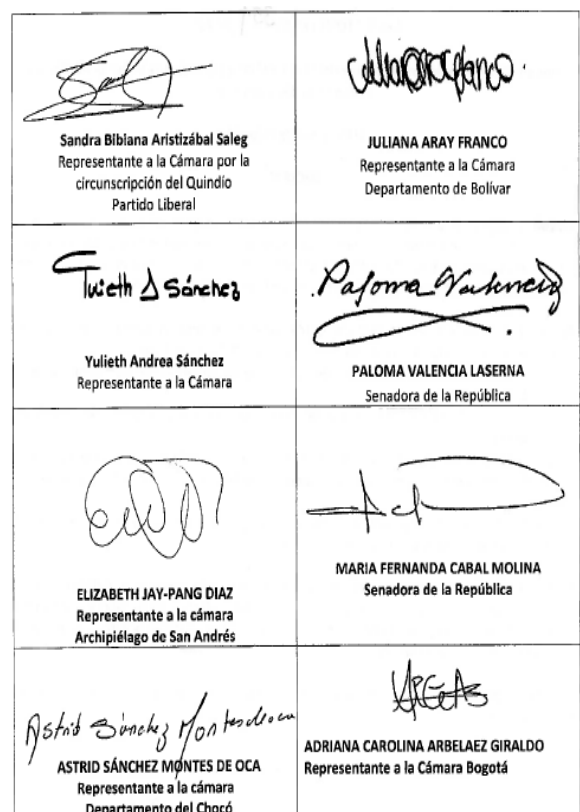 Sandra Bibiana Aristizábal Saleg
Representante a la Cámara por la
circunscripción del Quindío
Partido Liberal
JULIANA ARAY FRANCO
Representante a la Cámara
Departamento de Bolívar
Yulieth A Sánchez
Yulieth Andrea Sánchez
Representante a la Cámara
Paloma Valencia
PALOMA VALENCIA LASERNA
Senadora de la República
ELIZABETH JAY-PANG DIAZ
Representante a la cámara
Archipiélago de San Andrés
MARIA FERNANDA CABAL MOLINA
Senadora de la República
Astrid Sánchez Montes de oca
ASTRID SÁNCHEZ MONTES DE OCA
Representante a la cámara
Departamento del Chocó
ADRIANA CAROLINA ARBELAEZ GIRALDO
Representante a la Cámara Bogotá